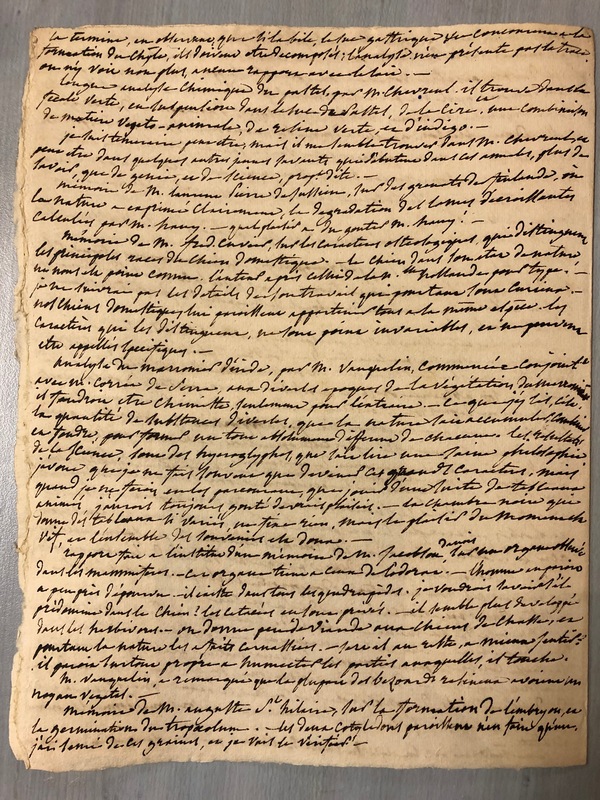 la termine, en observant, que si la bile, le suc gastrique &c concourent a la
formation du Chyle, ils doivent etre decomposés; l'analyse n'en présente pas la trace.
on n'y voit non plus, aucun rapport avec le lait. —
Longue analyse Chimique du pastel, par M. Chevreul. il trouve dans la
fecule verte, en suspension dans le suc de Pastel, de la Cire, et une Combinaison
de matiere vegeto-animale, de resine verte, et d'indigo. —
je suis temeraire peut etre, mais il me semble trouver dans M. Chevreul, et
peut etre dans quelques autres jeunes savants qui debutent dans ces annales, plus de
savoir, que de genie, et de science, propt dite. —
mémoire de M. Lecture de Saussure, sur des grenats de finlande, où
la nature a exprimé Clairement, la degradation des lames decroissantes
calculées par M. hauy. — quel plaisir a du gouter M. hauy! —
Mémoire de M. fred. Cuvier, sur les caracteres osteologiques, qui distinguent
les principales races du Chien domestique. — le chien dans son etat de nature,
celui de la nlle hollande pour type. —
je ne suivrai pas les details de son travail qui pourtant sont curieux. —
nos chiens domestiques, lui paroissent appartenir tous a la même espece. les
caracteres qui les distinguent, ne sont point invariables, et ne peuvent
etre appellés specifiques. —
Analyse du marronier d'inde, par M. Vauquelin, Commencée Conjointt
avec M. Corréa de Serra, aux diverses epoques de la végétation,
il faudroit etre chimiste, seulement pour l'extraire. — Ce que j'y lis
la quantité de substances diverses, que la nature sait accumuler, Combiner
et fondre, pour former un tout absolument different de chacune. les resultats
de la Science, sont des hyeroglyphes, que sait lire une saine philosophie
j'avoue que je ne sais souvent que deviner ces grands caracteres, mais
quand je ne ferois en les parcourant, que jouir d'une suite de tableaux
animés, j'aurois toujours gouté de vrais plaisirs. — la chambre noire qui
donne des tableaux si variés, ne fixe rien, mais le plaisir du moment est
vif, et l'ensemble des souvenirs en donne. —
rapport fait a l'institut d'un mémoire de M. Jacobson danois sur un organe observé
dans les mammiferes. — cet organe tient a celui de l'odorat. — l'homme en paroit
a peu près dépourvu — il existe dans tous les quadrupedes. je voudrois savoir s'il
prédomine dans le Chien! les cetacées en sont privés. — il semble plus developpé
dans les herbivores. — on donne peu de viande aux chiens de Chasse, et
pourtant la nature les a faits carnassiers. — sert-il au reste, a mieux sentir?
il paroit surtout propre a humecter les parties auxquelles, il touche.
M. Vauquelin, a remarqué que la plupart des bezoards resineux avoient un
noyau vegetal. —
Mémoire de M. auguste St hilaire, sur la formation de l'embryon, et
la germination du tropaeolum. — les deux Cotyledons paroissent n'en faire qu'un.
j'ai semé de ces graines, et je vais le vérifier! —